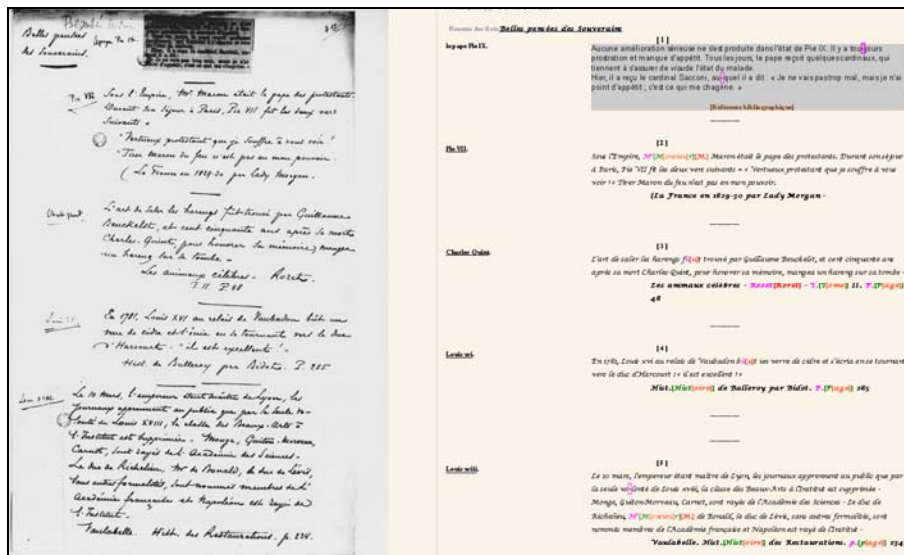 Belles pensées
des souverains.
Pie VII.
Sous l'Empire, Mr. Maron était le pape des protestants.
Durant son séjour à Paris, Pie VII fit les deux vers
suivants =
"Vertueux protestant que je souffre à vous voir !
"Tirer Maron du feu n'est pas en mon pouvoir.
(La France en 1829-30 par Lady Morgan.
L'art de saler les harengs fut trouvé par Guillaume
Beuckelst, et cent cinquante ans après sa mort
Charles-Quint, pour honorer sa mémoire, mangea
un hareng sur sa tombe -
Les animaux célèbres - Roret.
T. II. P. 48
Louis XVI.
En 1781, Louis XVI au relais de Vaubadon bût un
verre de cidre et s'écria en se tournant vers le duc
d'Harcourt : "il est excellent !"
Hist. de Balleroy par Bidot. P. 285
Louis XVIII.
Le 10 mars, l'empereur étant maître de Lyon, les
journaux apprennent au public que par la seule vo-
lonté de Louis XVIII, la classe des Beaux-Arts à
l'Institut est supprimée - Monge, Guiton-Morveau,
Carnot, sont rayés de l'Académie des Sciences -
Le duc de Richelieu, Mr de Bonald, le duc de Lévis,
sans autres formalités, sont nommés membres de l'
Académie française et Napoléon est rayé de
l'Institut -
Vaulabelle. Hist. des Restaurations. p. 234.
Belles pensées des Souverains
[1]
le pape Pie IX.
Aucune amélioration sérieuse ne s'est produite dans l'état de Pie IX. Il y a toujours
prostration et manque d'appétit. Tous les jours, le pape reçoit quelques cardinaux, qui
tiennent à s'assurer de visu de l'état du malade.
Hier, il a reçu le cardinal Sacconi, auquel il a dit : « Je ne vais pas trop mal, mais je n'ai
point d'appétit ; c'est ce qui me chagrine. »
[Référence bibliographique]
[2]
Pie VII.
Sous l'Empire, Mr[Monsieur][M.] Maron était le pape des protestants. Durant son séjour
à Paris, Pie VII fit les deux vers suivants = « Vertueux protestant que je souffre à vous
voir ! » Tirer Maron du feu n'est pas en mon pouvoir.
(La France en 1829-30 par Lady Morgan -
[3]
Charles Quint.
L'art de saler les harengs fû[u]t trouvé par Guillaume Beuckelst, et cent cinquante ans
après sa mort Charles-Quint, pour honorer sa mémoire, mangea un hareng sur sa tombe -
Les animaux célèbres - Roret[Roret] - T.[Tome] II. P.[Page]
48
[4]
Louis xvi.
En 1781, Louis xvi au relais de Vaubadon bû[u]t un verre de cidre et s'écria en se tournant
vers le duc d'Harcourt : « il est excellent ! »
Hist.[Histoire] de Balleroy par Bidot. P.[Page] 285
[5]
Louis xviii.
Le 10 mars, l'empereur étant maître de Lyon, les journaux apprennent au public que par
la seule volonté de Louis xviii, la classe des Beaux-Arts à l'Institut est supprimée -
Monge, Guiton-Morveau, Carnot, sont rayés de l'Académie des Sciences - Le duc de
Richelieu, Mr[Monsieur][M.] de Bonald, le duc de Lévis, sans autres formalités, sont
nommés membres de l'Académie française et Napoléon est rayé de l'Institut -
Vaulabelle. Hist.[Histoire] des Restaurations. p.[page] 234